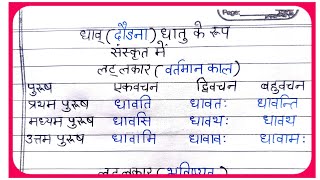 Page:
धाव् (दौडना) धातु के रूप
संस्कृत में
लट् लकार (वर्तमान काल)
पुरूष एकवचन द्विवचन बहुवचन
प्रथम पुरूष धावति धावतः धावन्ति
मध्यम पुरूष धावसि धावथः धावथ
उत्तम पुरूष धावामि धावावः धावामः